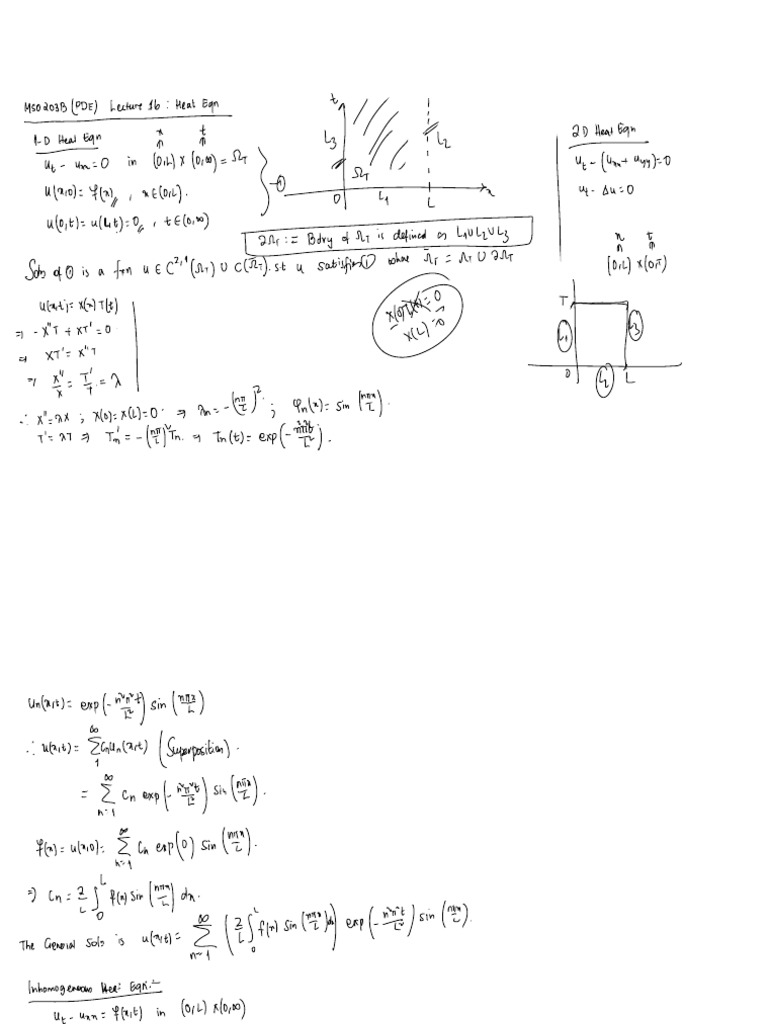 MSO203B (PDE) Lecture 16 : Heat Eqn
1-D Heat Eqn
x t
u_t - u_xx = 0 in (0,L) × (0,∞) = Ω_T
u(x,0) = f(x), x ∈ (0,L).
u(0,t) = u(L,t) = 0, t ∈ (0,∞)
①
t
L_3
Ω_T
L_2
0 L_1 L x
2D Heat Eqn
u_t - (u_xx + u_yy) = 0
u_t - Δu = 0
x t
(0,L) × (0,T)
∂Ω_T := Bdry of Ω_T is defined as L_1 ∪ L_2 ∪ L_3
Soln of ① is a fxn u ∈ C^{2,1}(Ω_T) ∪ C(Ω̄_T) st u satisfies ① where Ω̄_T = Ω_T ∪ ∂Ω_T
T
L_1 L_3
0 L_2 L
u(x,t) = X(x) T(t)
⇒ - X''T + XT' = 0
⇒ XT' = X''T
⇒ X''/X = T'/T = λ
X(0)T(t) = 0
X(L) = 0
∴ X'' = λX ; X(0) = X(L) = 0 ⇒ λ_n = -(nπ/L)^2 ; φ_n(x) = sin(nπx/L).
T' = λT ⇒ T_n' = -(nπ/L)^2 T_n ⇒ T_n(t) = exp(-n^2π^2t/L^2).
u_n(x,t) = exp(-n^2π^2t/L^2) sin(nπx/L)
∴ u(x,t) = ∑_1^∞ C_n u_n(x,t) (Superposition).
= ∑_{n=1}^∞ C_n exp(-n^2π^2t/L^2) sin(nπx/L).
f(x) = u(x,0) = ∑_{n=1}^∞ C_n exp(0) sin(nπx/L).
⇒ C_n = 2/L ∫_0^L f(x) sin(nπx/L) dx.
The General Soln is u(x,t) = ∑_{n=1}^∞ (2/L ∫_0^L f(x) sin(nπx/L) dx) exp(-n^2π^2t/L^2) sin(nπx/L).
Inhomogeneous Heat Eqn:-
u_t - u_xx = f(x,t) in (0,L) × (0,∞)